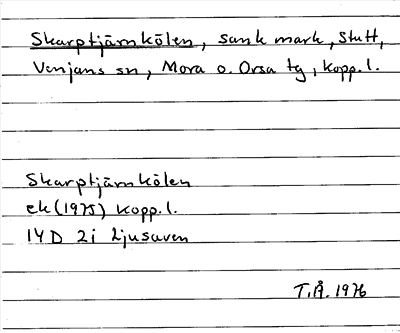 Skarptjärnkölen, sank mark, Stutt,
Venjans sn, Mora o. Orsa tg, Kopp. l.
Skarptjärnkölen
ek (1975) Kopp. l.
14D 2i Ljusaven
T.Å. 1976